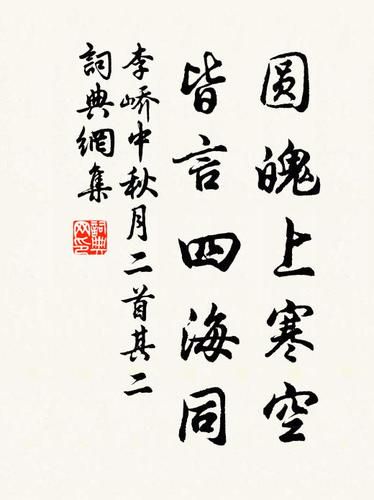 圆魄上寒空
皆言四海同
李峤中秋月二首其二
詞典網集